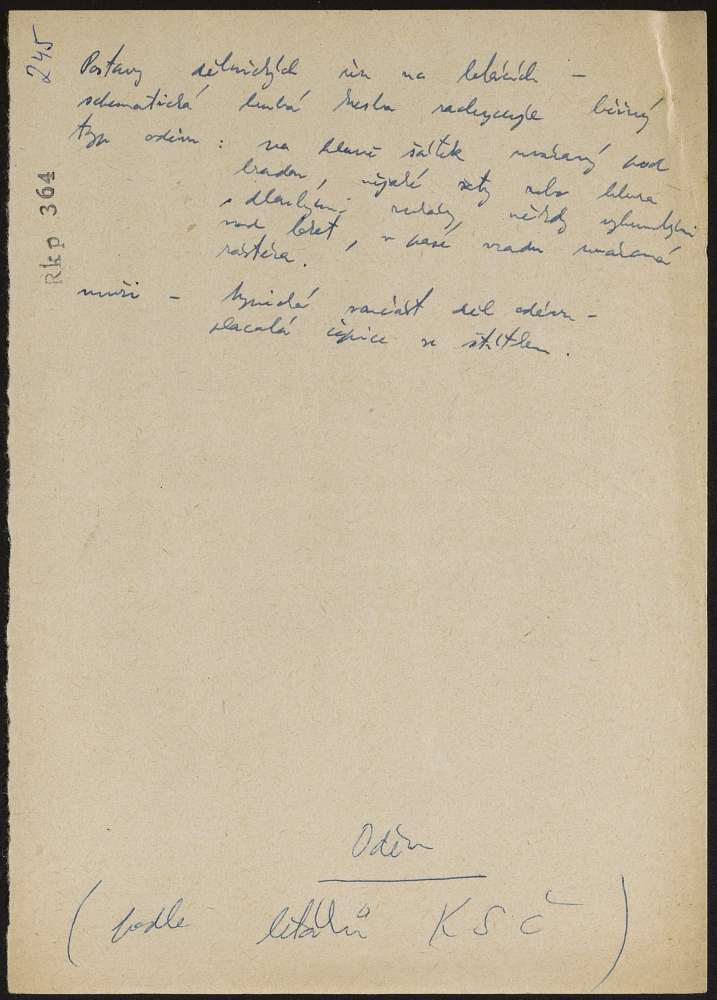 245
Rkp 364
Postavy dělnických žen na letácích –
schematická hrubá kresba zachycuje běžný
typ oděvu : na hlavě šátek uvázaný pod
bradou, nějaké šaty nebo bluza
s dlouhými rukávy, někdy vyhrnutými
nad loket, v pase vzadu uvázaná
zástěra.
muži – typická součást děl oděvu –
placatá čepice se štítkem.
Oděv
(podle letáků KSČ)